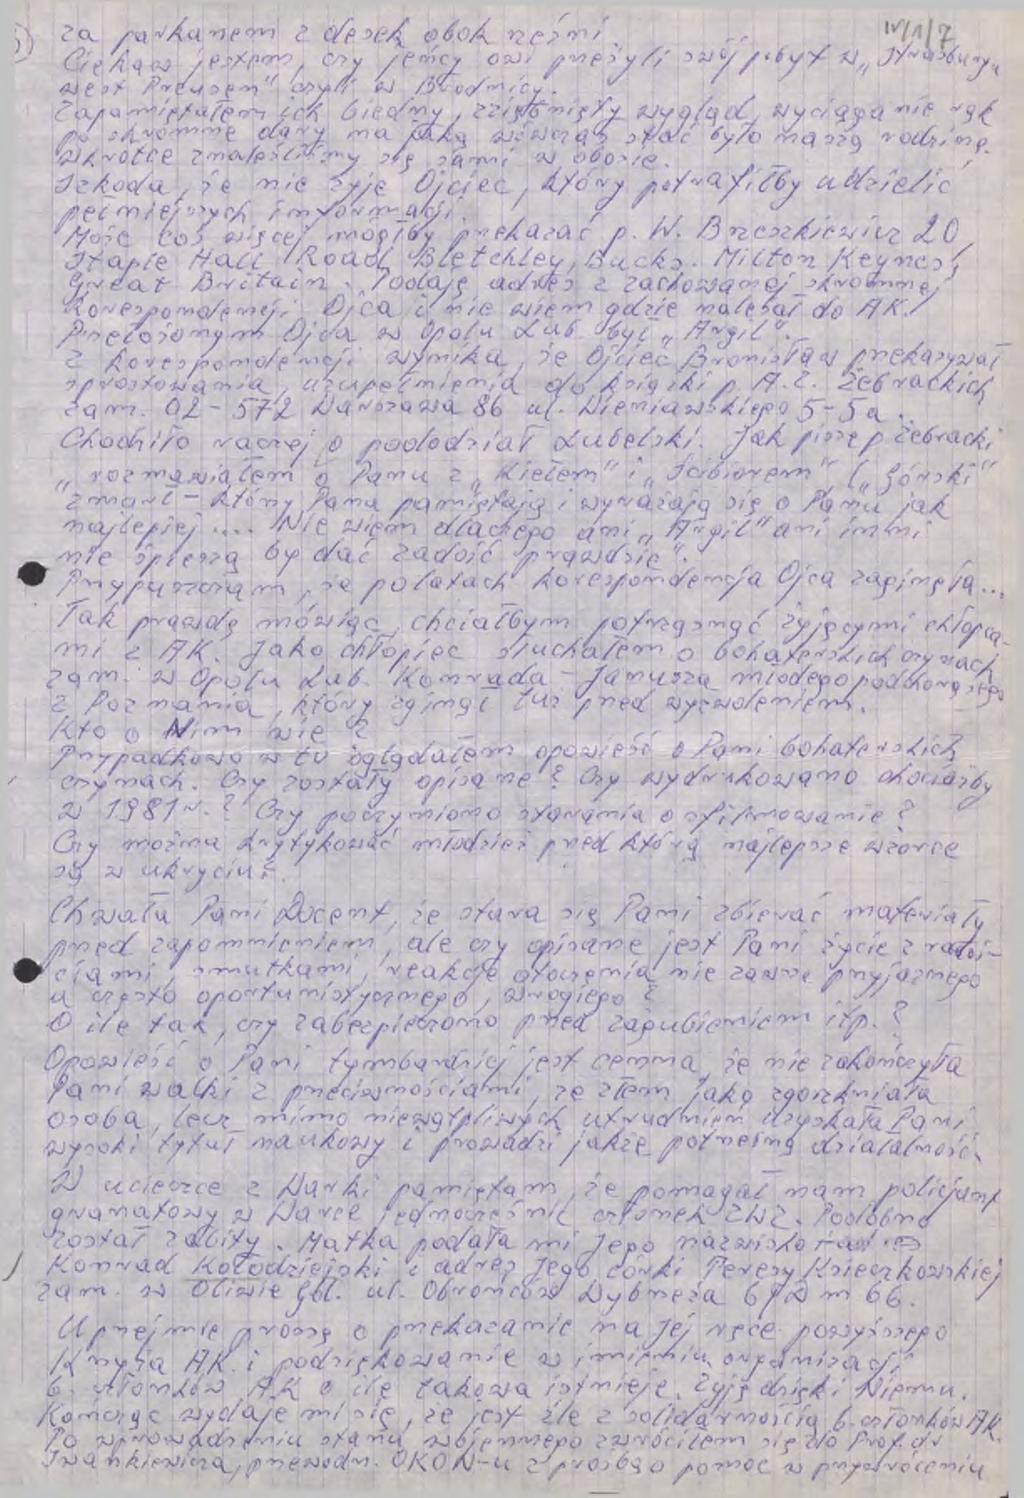 5)
IV/1/7
za parkanem z desek obok rzeźni.
Ciekaw jestem, czy jeńcy owi przeżyli swój pobyt w „Strasburgu
West Preusen" czyli w Brodnicy.
Zapamiętałem ich biedny, zziębnięty wygląd, wyciąganie rąk
po skromne dary na jaką wówczas stać było naszą rodzinę.
Wkrótce znaleźliśmy się sami w obozie.
Szkoda, że nie żyje Ojciec, który potrafiłby udzielić
pełniejszych informacji.
Może coś więcej mógłby przekazać p. W. Brzeszkiewicz 20,
Staple Hall Road Bletchley, Bucks. Milton Keynes,
Great Britain. Podaję adres z zachowanej skromnej
korespondencji Ojca i nie wiem gdzie należał do AK.
Przełożonym Ojca w Opolu Lub. był „Argil".
Z korespondencji wynika, że Ojciec Bronisław przekazywał
sprostowania, uzupełnienia do książki p. A.Z. Żebrackich
zam. 02-572 Warszawa 86 ul. Wieniawskiego 5-5a.
Chodziło raczej o pododdział Lubelski. Jak pisze p. Żebracki
„rozmawiałem o Panu z „Kietem" i „Ścibiorem" („Górski"
zmarł - który Pana pamiętają i wyrażają się o Panu jak
najlepiej .... Nie wiem dlaczego ani „Argil" ani inni
nie śpieszą by dać zadość prawdzie".
Przypuszczam, że po latach korespondencja Ojca zaginęła...
Tak prawdę mówiąc, chciałbym potrząsnąć żyjącymi chłopca-
mi z AK. Jako chłopiec słuchałem o bohaterskich czynach
zam. w Opolu Lub. Konrada - Janusza młodego podchorążego
z Poznania, który zginął tuż przed wyzwoleniem.
Kto o Nim wie?
Przypadkowo w tv oglądałem opowieść o Pani bohaterskich
czynach. Czy zostały opisane? Czy wydrukowano chociażby
w 1981 r.? Czy poczyniono starania o sfilmowanie?
Czy można krytykować młodzież przed którą najlepsze wzorce
są w ukryciu?.
Chwała Pani Docent, że stara się Pani zbierać materiały
przed zapomnieniem, ale czy opisane jest Pani życie z radoś-
ciami, smutkami, reakcje otoczenia nie zawsze przyjaznego
a często oportunistycznego, wrogiego?
O ile tak, czy zabezpieczono przed zagubieniem itp.?
Opowieść o Pani tymbardziej jest cenna, że nie zakończyła
Pani walki z przeciwnościami, ze złem jako zgorzkniała
osoba, lecz mimo niewątpliwych utrudnień uzyskała Pani
wysoki tytuł naukowy i prowadzi jakże potrzebną działalność.
W ucieczce z Warki pamiętam, że pomagał nam policjant
granatowy w Warce jednocześnie członek ZWZ. Podobno
został zabity. Matka podała mi Jego nazwisko
Konrad Kołodziejski i adres Jego córki Teresy Ksieczkowskiej
zam. w Oliwie Gbl. ul. Obrońców Wybrzeża 6/D m 66.
Uprzejmie proszę o przekazanie na Jej ręce powyższego
Krzyża AK. i podziękowanie w imieniu organizacji
b. członków AK o ile takowa istnieje. Żyję dzięki Niemu.
Kończąc wydaje mi się, że jest źle z solidarnością b. członków AK.
Po wprowadzeniu stanu wojennego zwróciłem się do Prof. dr
Iwankiewicza, przewodn. OKON-u z prośbą o pomoc w przywróceniu